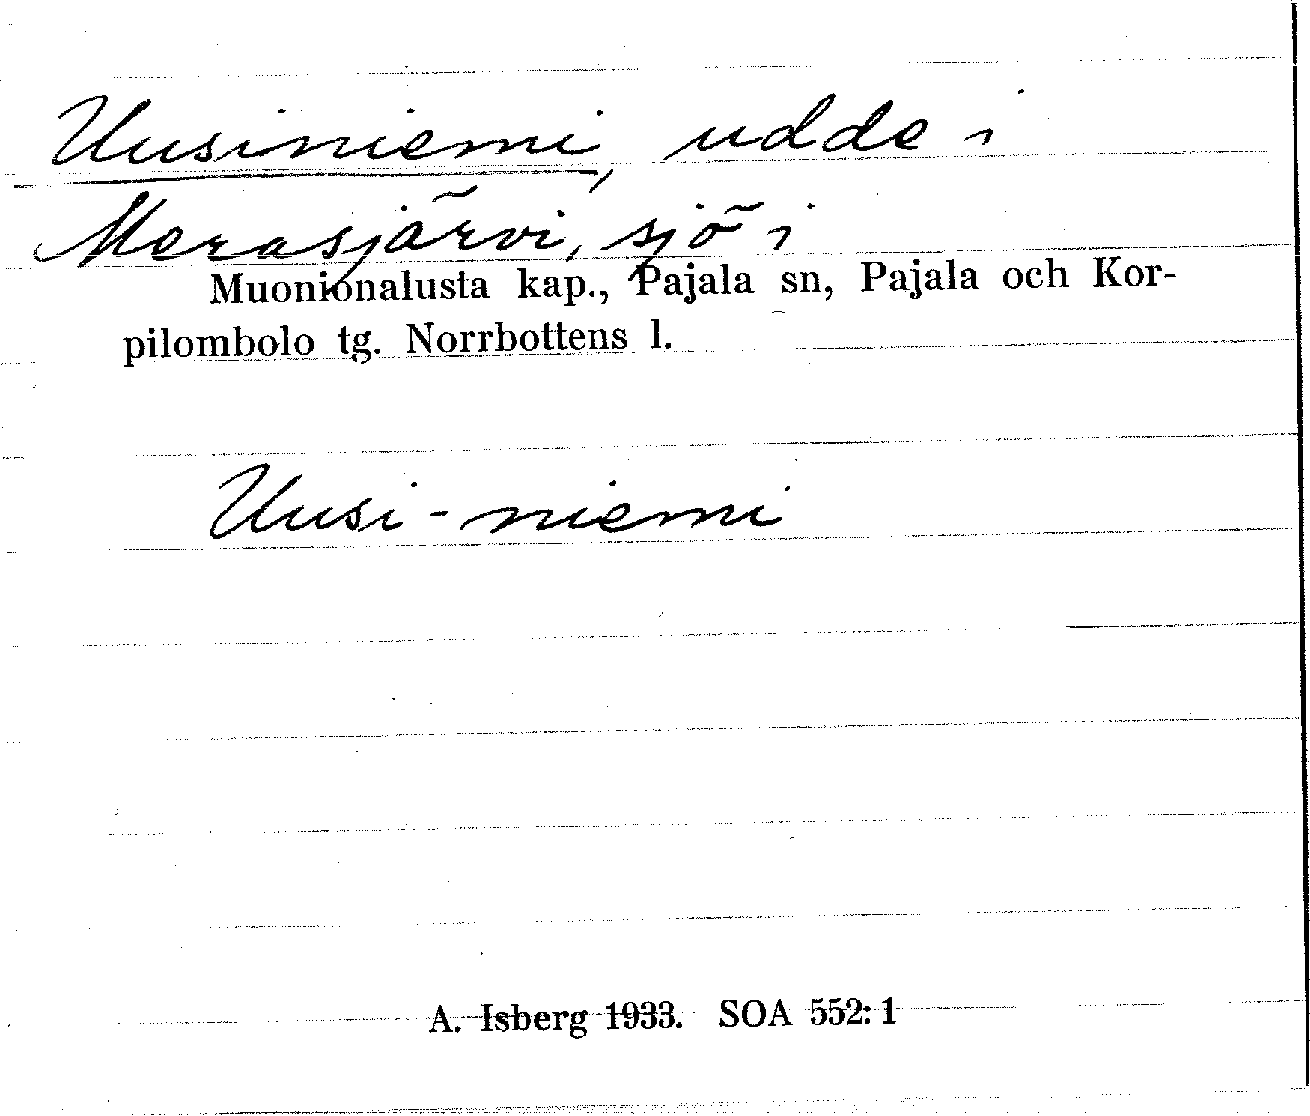 Uusiniemi, udde i
Merasjärvi, sjö i
Muonionalusta kap., Pajala sn, Pajala och Kor-
pilombolo tg. Norrbottens l.
Uusi-niemi
A. Isberg 1933. SOA 552: 1